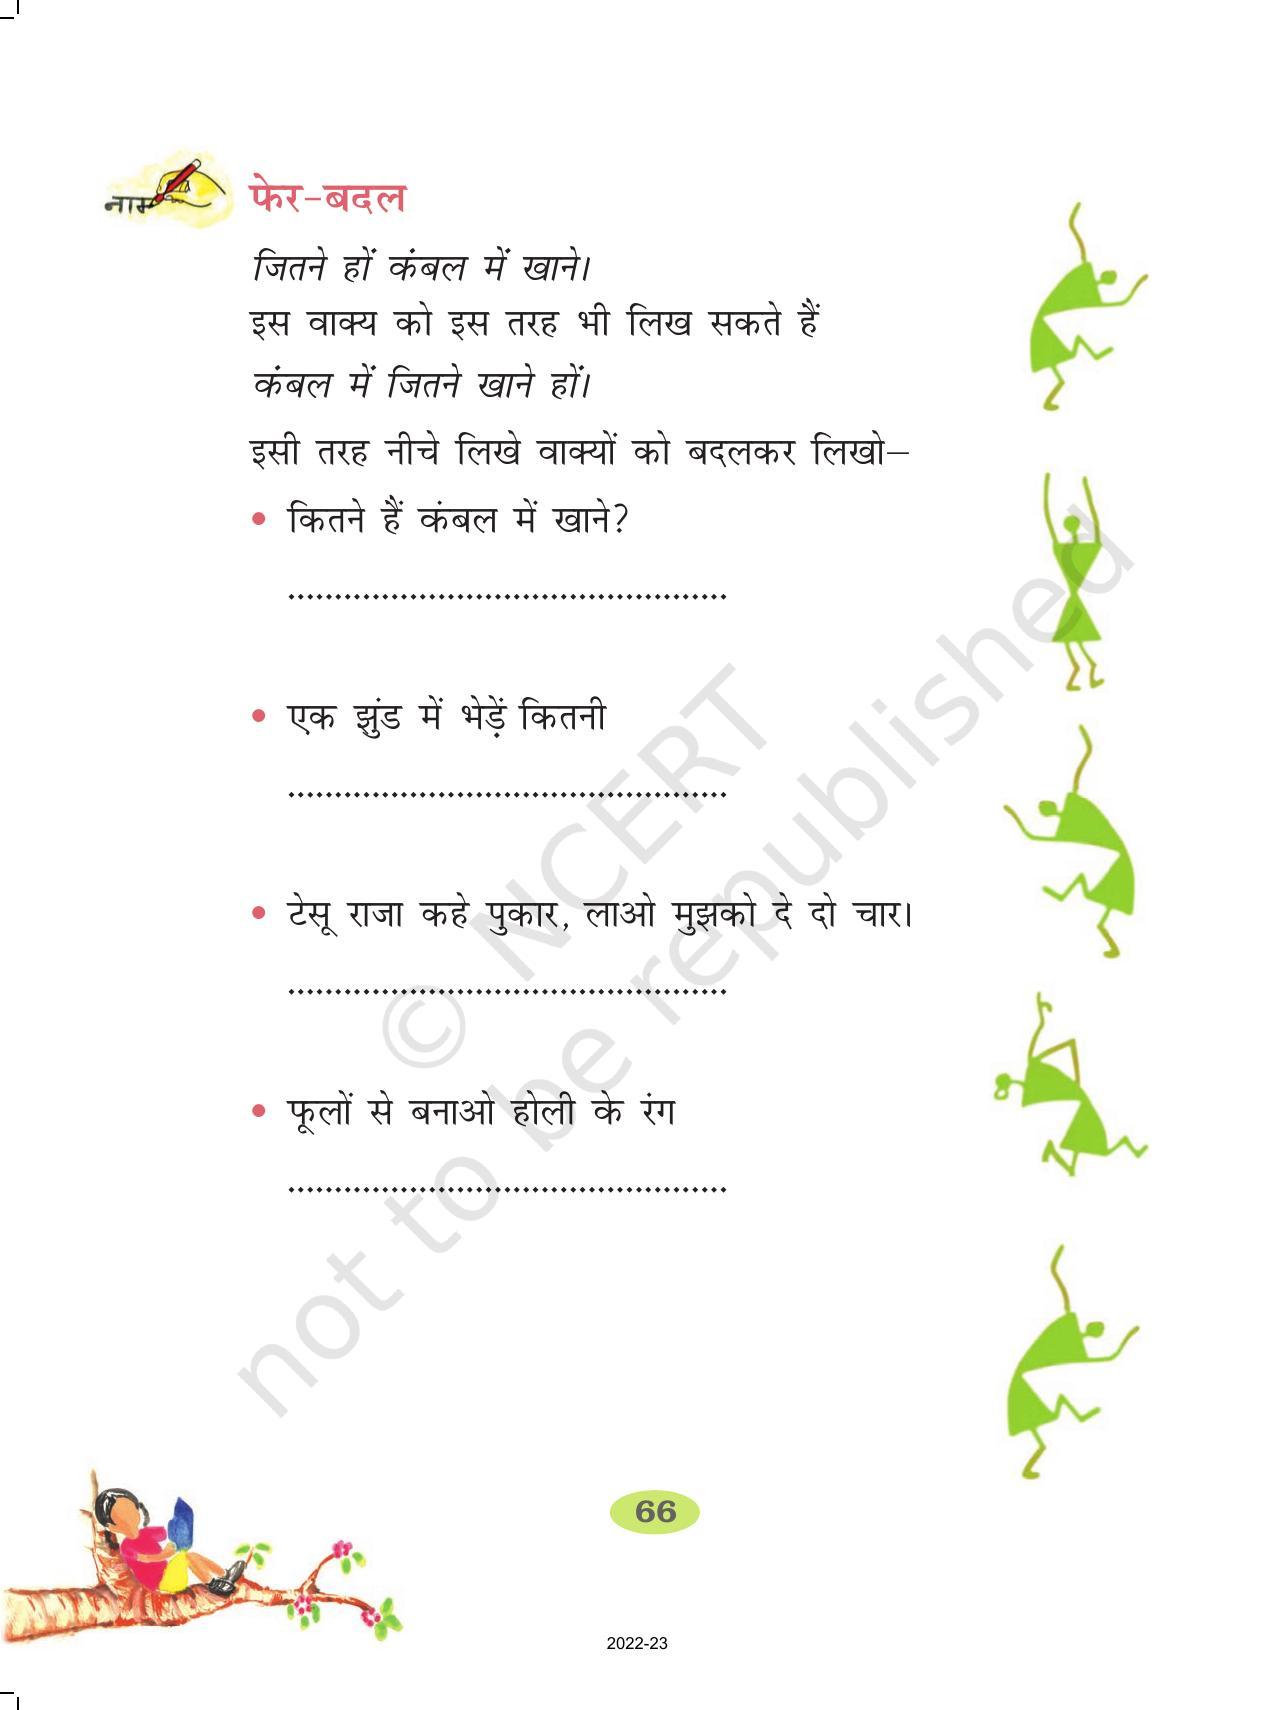 नाम
फेर-बदल
जितने हों कंबल में खाने।
इस वाक्य को इस तरह भी लिख सकते हैं
कंबल में जितने खाने हों।
इसी तरह नीचे लिखे वाक्यों को बदलकर लिखो–
• कितने हैं कंबल में खाने?
...............................................
• एक झुंड में भेड़ें कितनी
...............................................
• टेसू राजा कहे पुकार, लाओ मुझको दे दो चार।
...............................................
• फूलों से बनाओ होली के रंग
...............................................
© NCERT
not to be republished
66
2022-23